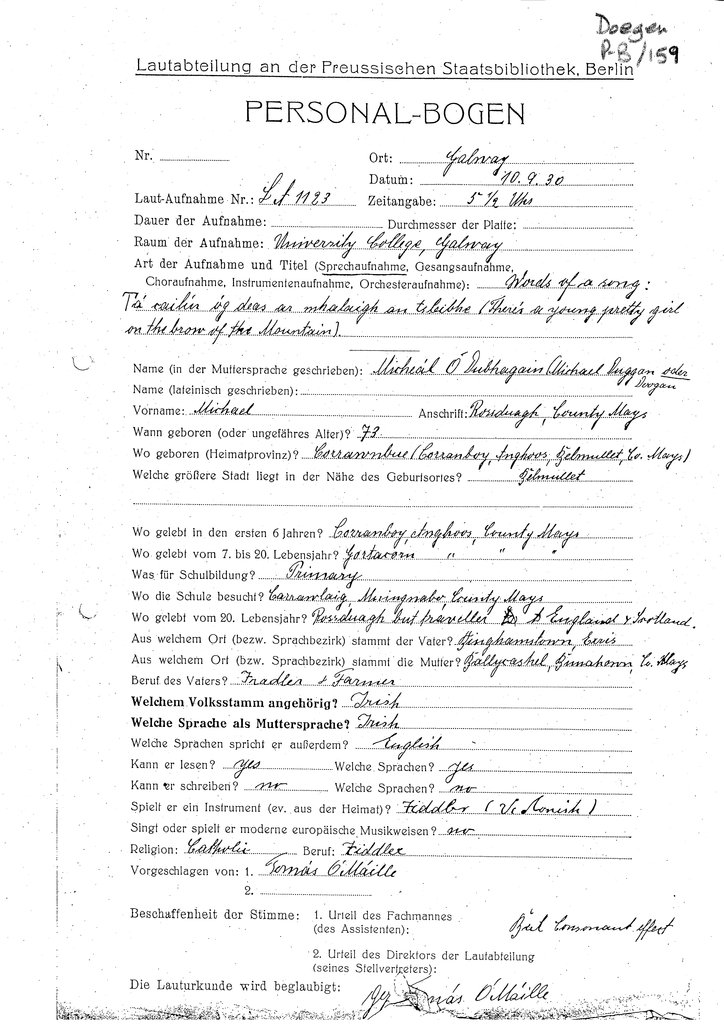 Doegen
P-B/159
Lautabteilung an der Preussischen Staatsbibliothek, Berlin
PERSONAL-BOGEN
Nr. Ort: Galway
Datum: 10.9.30
Laut-Aufnahme Nr.: LA 1123 Zeitangabe: 5 1/2 Uhr
Dauer der Aufnahme: Durchmesser der Platte:
Raum der Aufnahme: University College, Galway
Art der Aufnahme und Titel (Sprechaufnahme, Gesangsaufnahme,
Choraufnahme, Instrumentenaufnahme, Orchesteraufnahme): Words of a song:
Tá cailín óg deas ar mhalaigh an tsleibhe (There's a young pretty girl
on the brow of the Mountain).
Name (in der Muttersprache geschrieben): Micheál Ó Dubhagain (Michael Duggan oder
Doogan
Name (lateinisch geschrieben):
Vorname: Michael Anschrift: Rossduagh, County Mayo
Wann geboren (oder ungefähres Alter)? 73
Wo geboren (Heimatprovinz)? (Corranboy, Inghoos, Belmullet, Co. Mayo)
Welche größere Stadt liegt in der Nähe des Geburtsortes? Belmullet
Wo gelebt in den ersten 6 Jahren? Corranboy, Inghoos, County Mayo
Wo gelebt vom 7. bis 20. Lebensjahr? Gortacorn " " "
Was für Schulbildung? Primary
Wo die Schule besucht? County Mayo
Wo gelebt vom 20. Lebensjahr? Rossduagh but traveller to England & Scotland.
Aus welchem Ort (bezw. Sprachbezirk) stammt der Vater? Binghamstown, Erris
Aus welchem Ort (bzw. Sprachbezirk) stammt die Mutter? Ballycashel, Bunahown, Co. Mayo
Beruf des Vaters? & Farmer
Welchem Volksstamm angehörig? Irish
Welche Sprache als Muttersprache? Irish
Welche Sprachen spricht er außerdem? English
Kann er lesen? yes Welche Sprachen? yes
Kann er schreiben? no Welche Sprachen? no
Spielt er ein Instrument (ev. aus der Heimat)? Fiddler
Singt oder spielt er moderne europäische Musikweisen? no
Religion: Catholic Beruf: Fiddler
Vorgeschlagen von: 1. Tomás Ó Máille
2.
Beschaffenheit der Stimme: 1. Urteil des Fachmannes
(des Assistenten): Consonant effect
2. Urteil des Direktors der Lautabteilung
(seines Stellvertreters):
Die Lauturkunde wird beglaubigt: gez Tomás Ó Máille